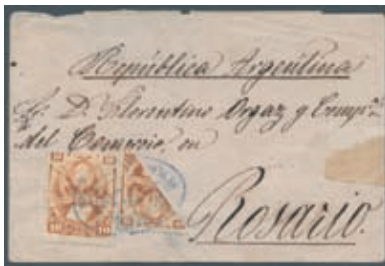 República Argentina
Sr. D. Florentino Orgaz y Compª.
del Comercio, en
Rosario.
10 10